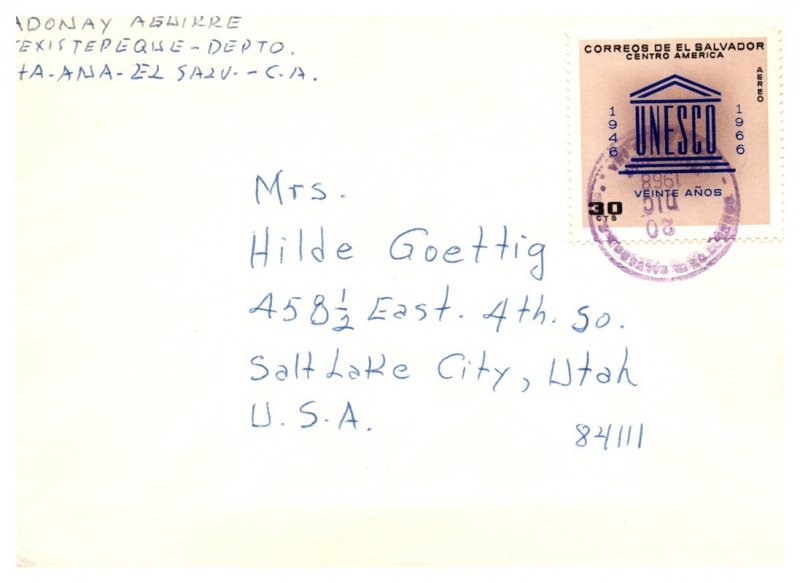 ADONAY AGUIRRE
TEXISTEPEQUE-DEPTO.
TA-ANA-EL SALV.-C.A.
CORREOS DE EL SALVADOR
CENTRO AMERICA
AEREO
1946
UNESCO
1966
VEINTE AÑOS
30
CTS
20
DIC
1968
Mrs.
Hilde Goettig
458 1/2 East. 4th. So.
Salt Lake City, Utah
U.S.A.
84111